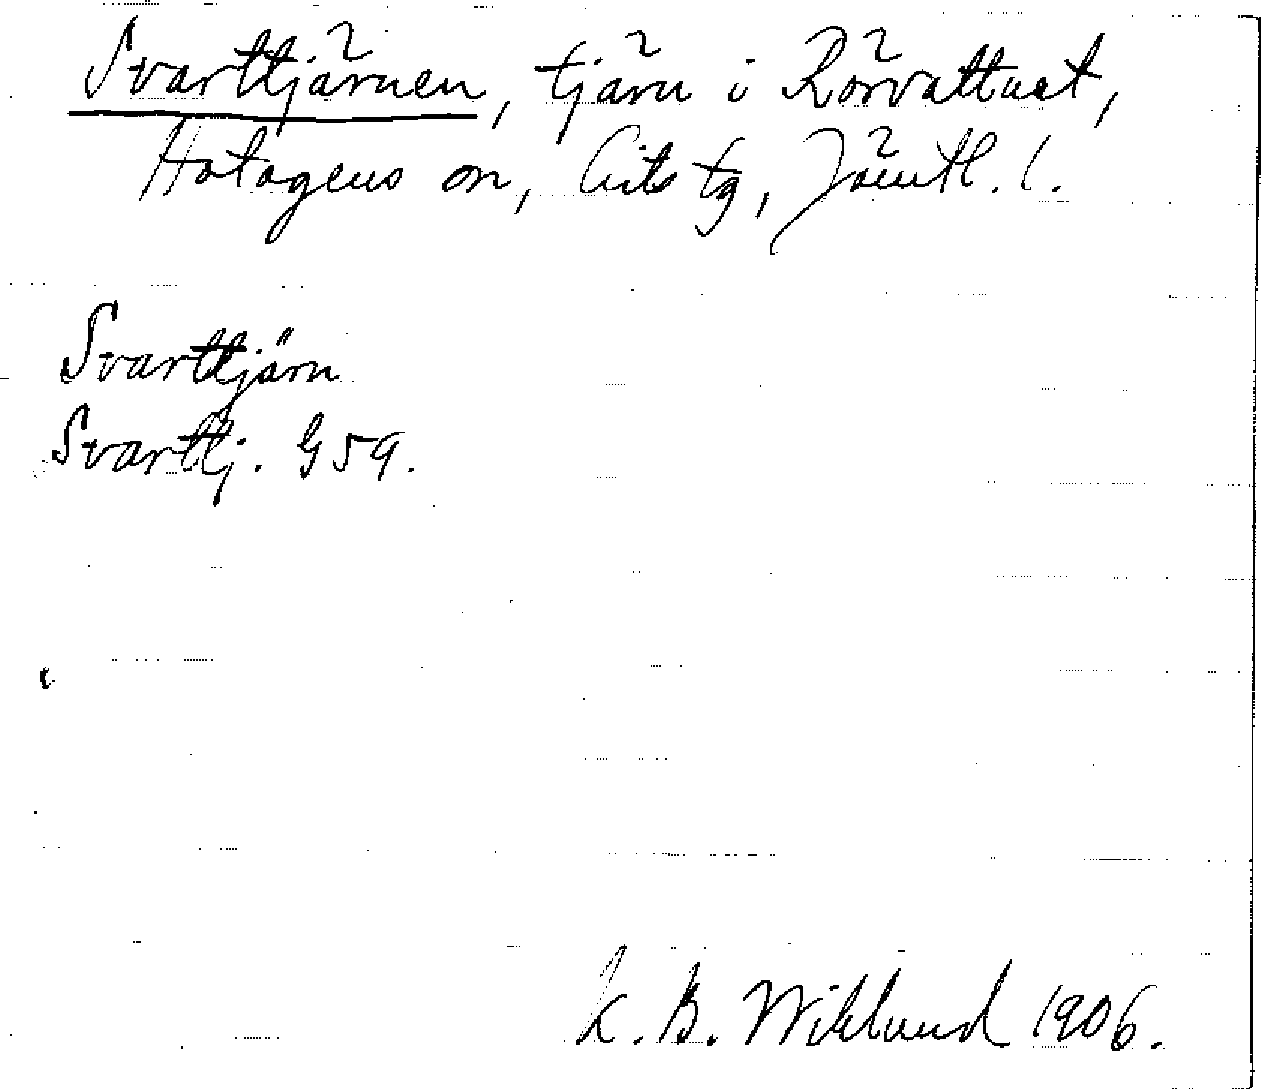 Svarttjärnen, tjärn i Rörvattnet,
Hotagens sn, Lits tg, Jämtl. l.
Svarttjärn
Svarttj. G59.
K. B. Wiklund 1906.